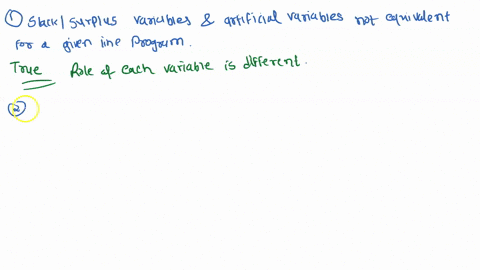 ① Slack/surplus variables & artificial variables not equivalent
for a given line Program.
True Role of each variable is different.
②